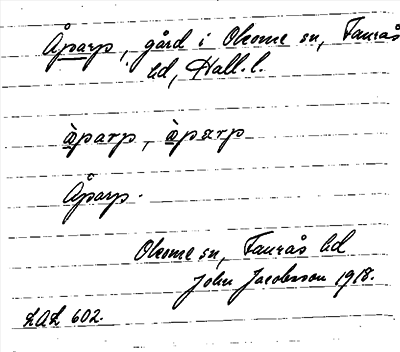 Åparp, gård i Okome sn, Faurås
hd, Hall. l.
àparp, àparp
Åparp.
Okome sn, Faurås hd
John Jacobsson 1918.
LAL 602.